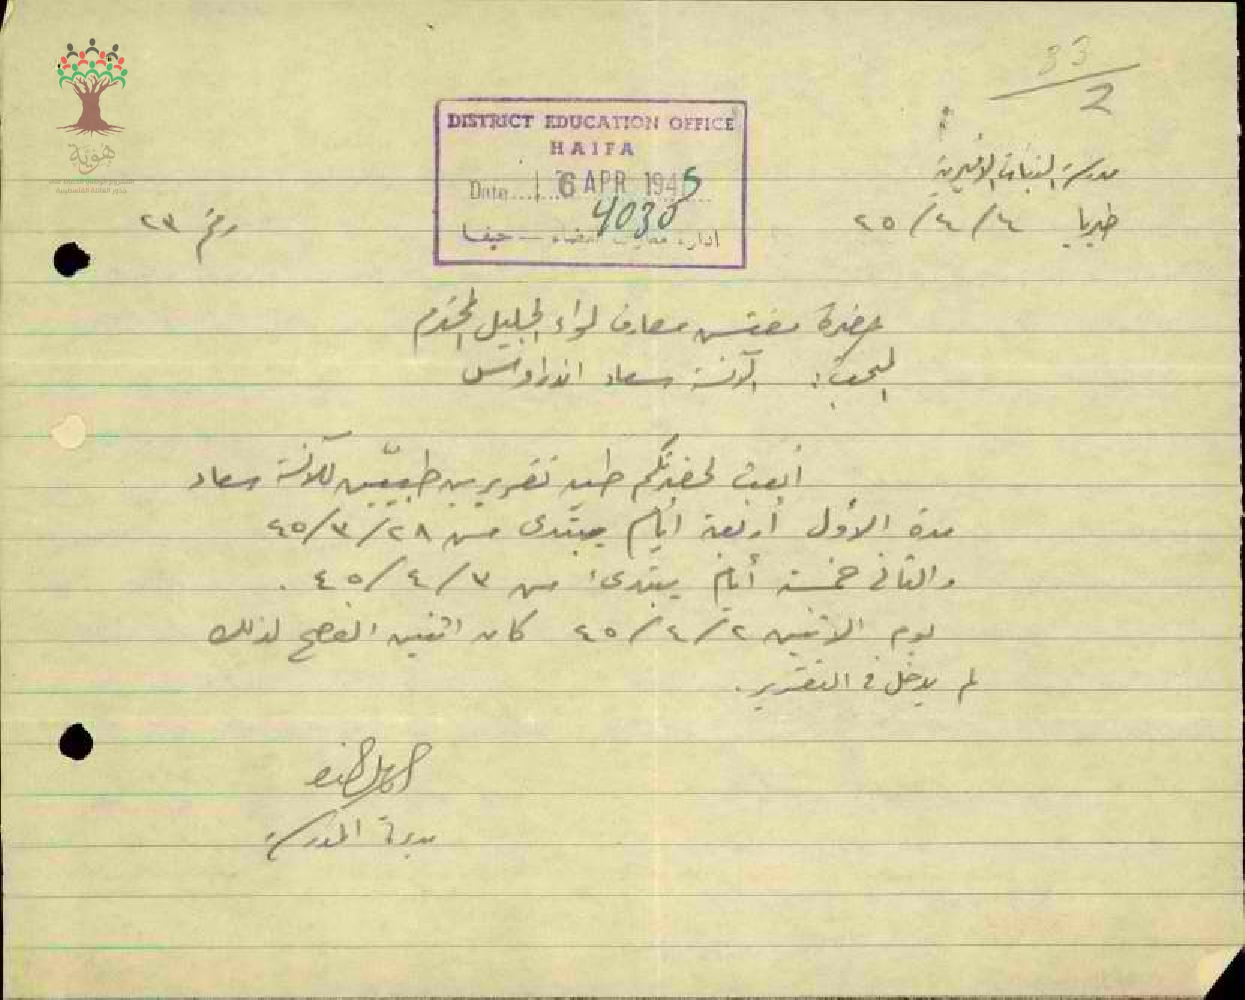 33
2
DISTRICT EDUCATION OFFICE
HAIFA
Date 6 APR 1945
4030
ادارة معارف القضاء — حيفا
هوية
مدرسة البنات الاميرية
طبريا ٤ / ٤ / ٤٥
رقم ٢٣
حضرة مفتش معارف لواء الجليل المحترم
المبحث: الآنسة سعاد اندراوس
أبعث لحضرتكم طيه تقريرين طبيّين للآنسة سعاد
مدة الأول أربعة أيام يبتدئ من ٢٨/٣/٤٥
والثاني خمسة أيام يبتدئ من ٣/٤/٤٥.
يوم الاثنين ٢/٤/٤٥ كان اثنين الفصح لذلك
لم يدخل في التقرير.
مديرة المدرسة